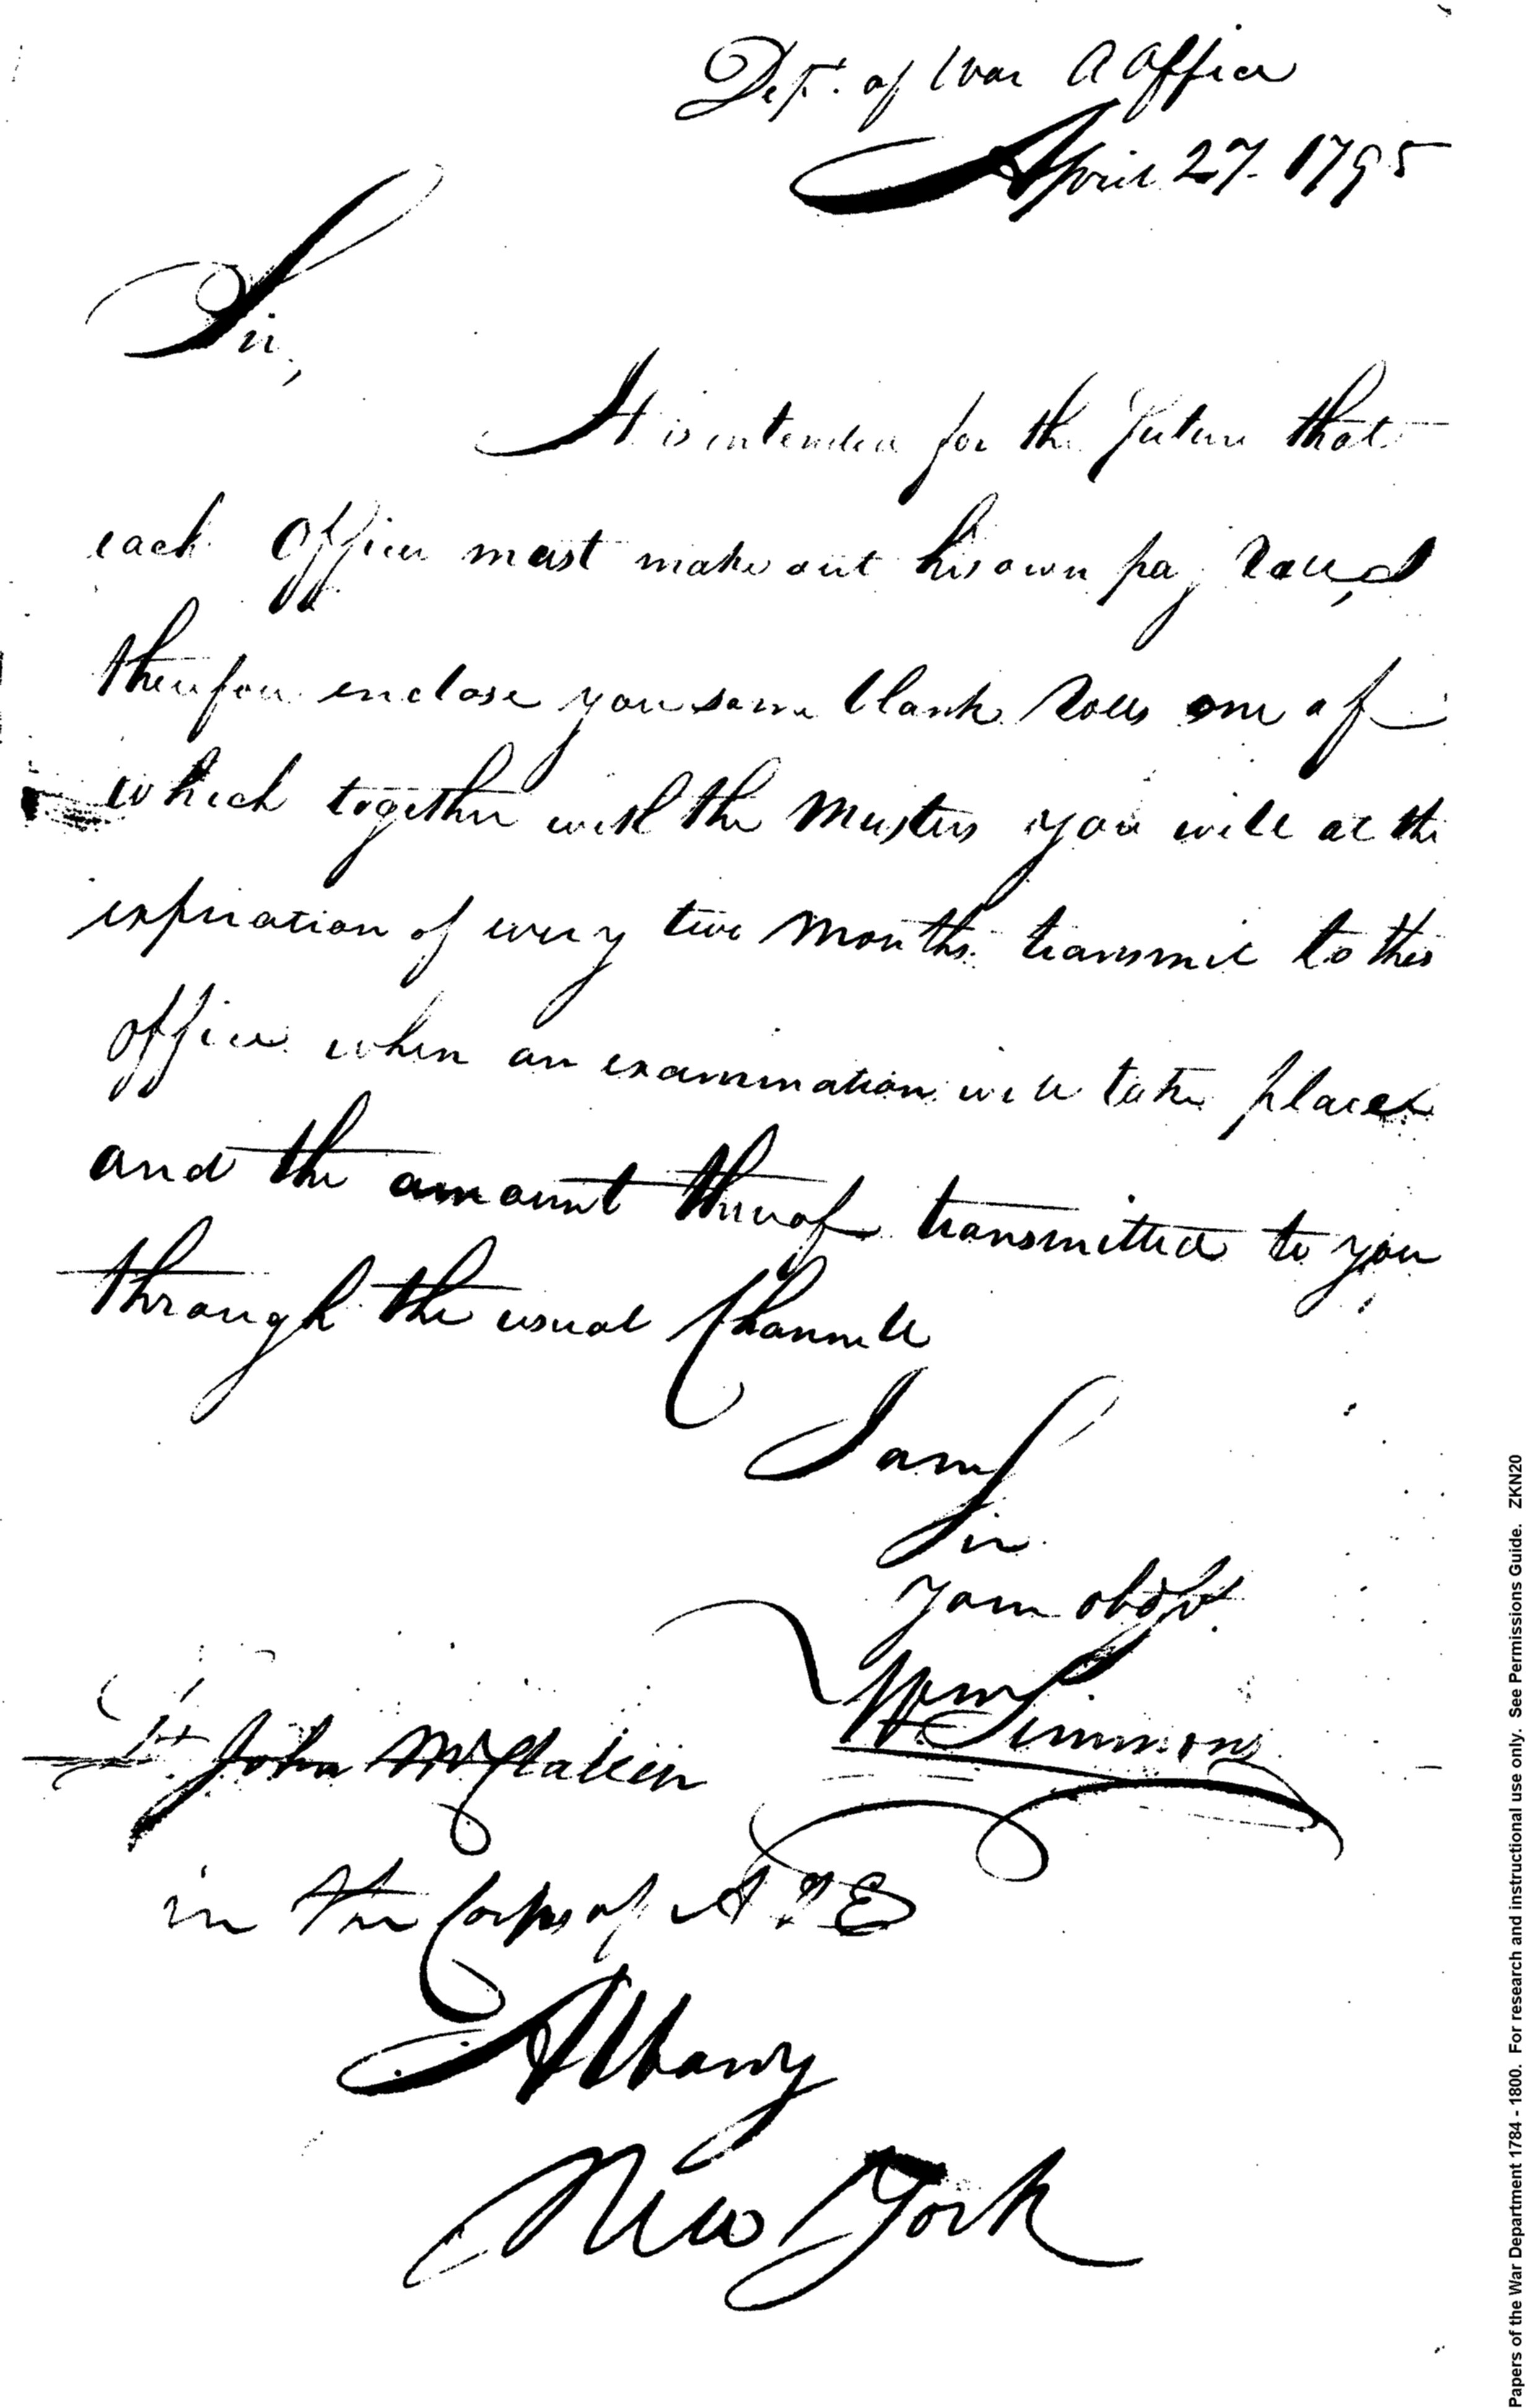 Dept. of War A Office
April 27. 1795
Sir,
It is intended for the future that
each Officer must make out his own pay Rolls, I
therefore enclose you some blank Rolls one of
which together with the Musters you will at the
expiration of every two Months transmit to this
office when an examination will take place
and the amount thereof transmitted to you
through the usual Channell
I am
Sir
Your obdt.
Wm Simmons
Lt John
in the Corps of A. & E
Albany
New York
Papers of the War Department 1784 - 1800. For research and instructional use only. See Permissions Guide. ZKN20